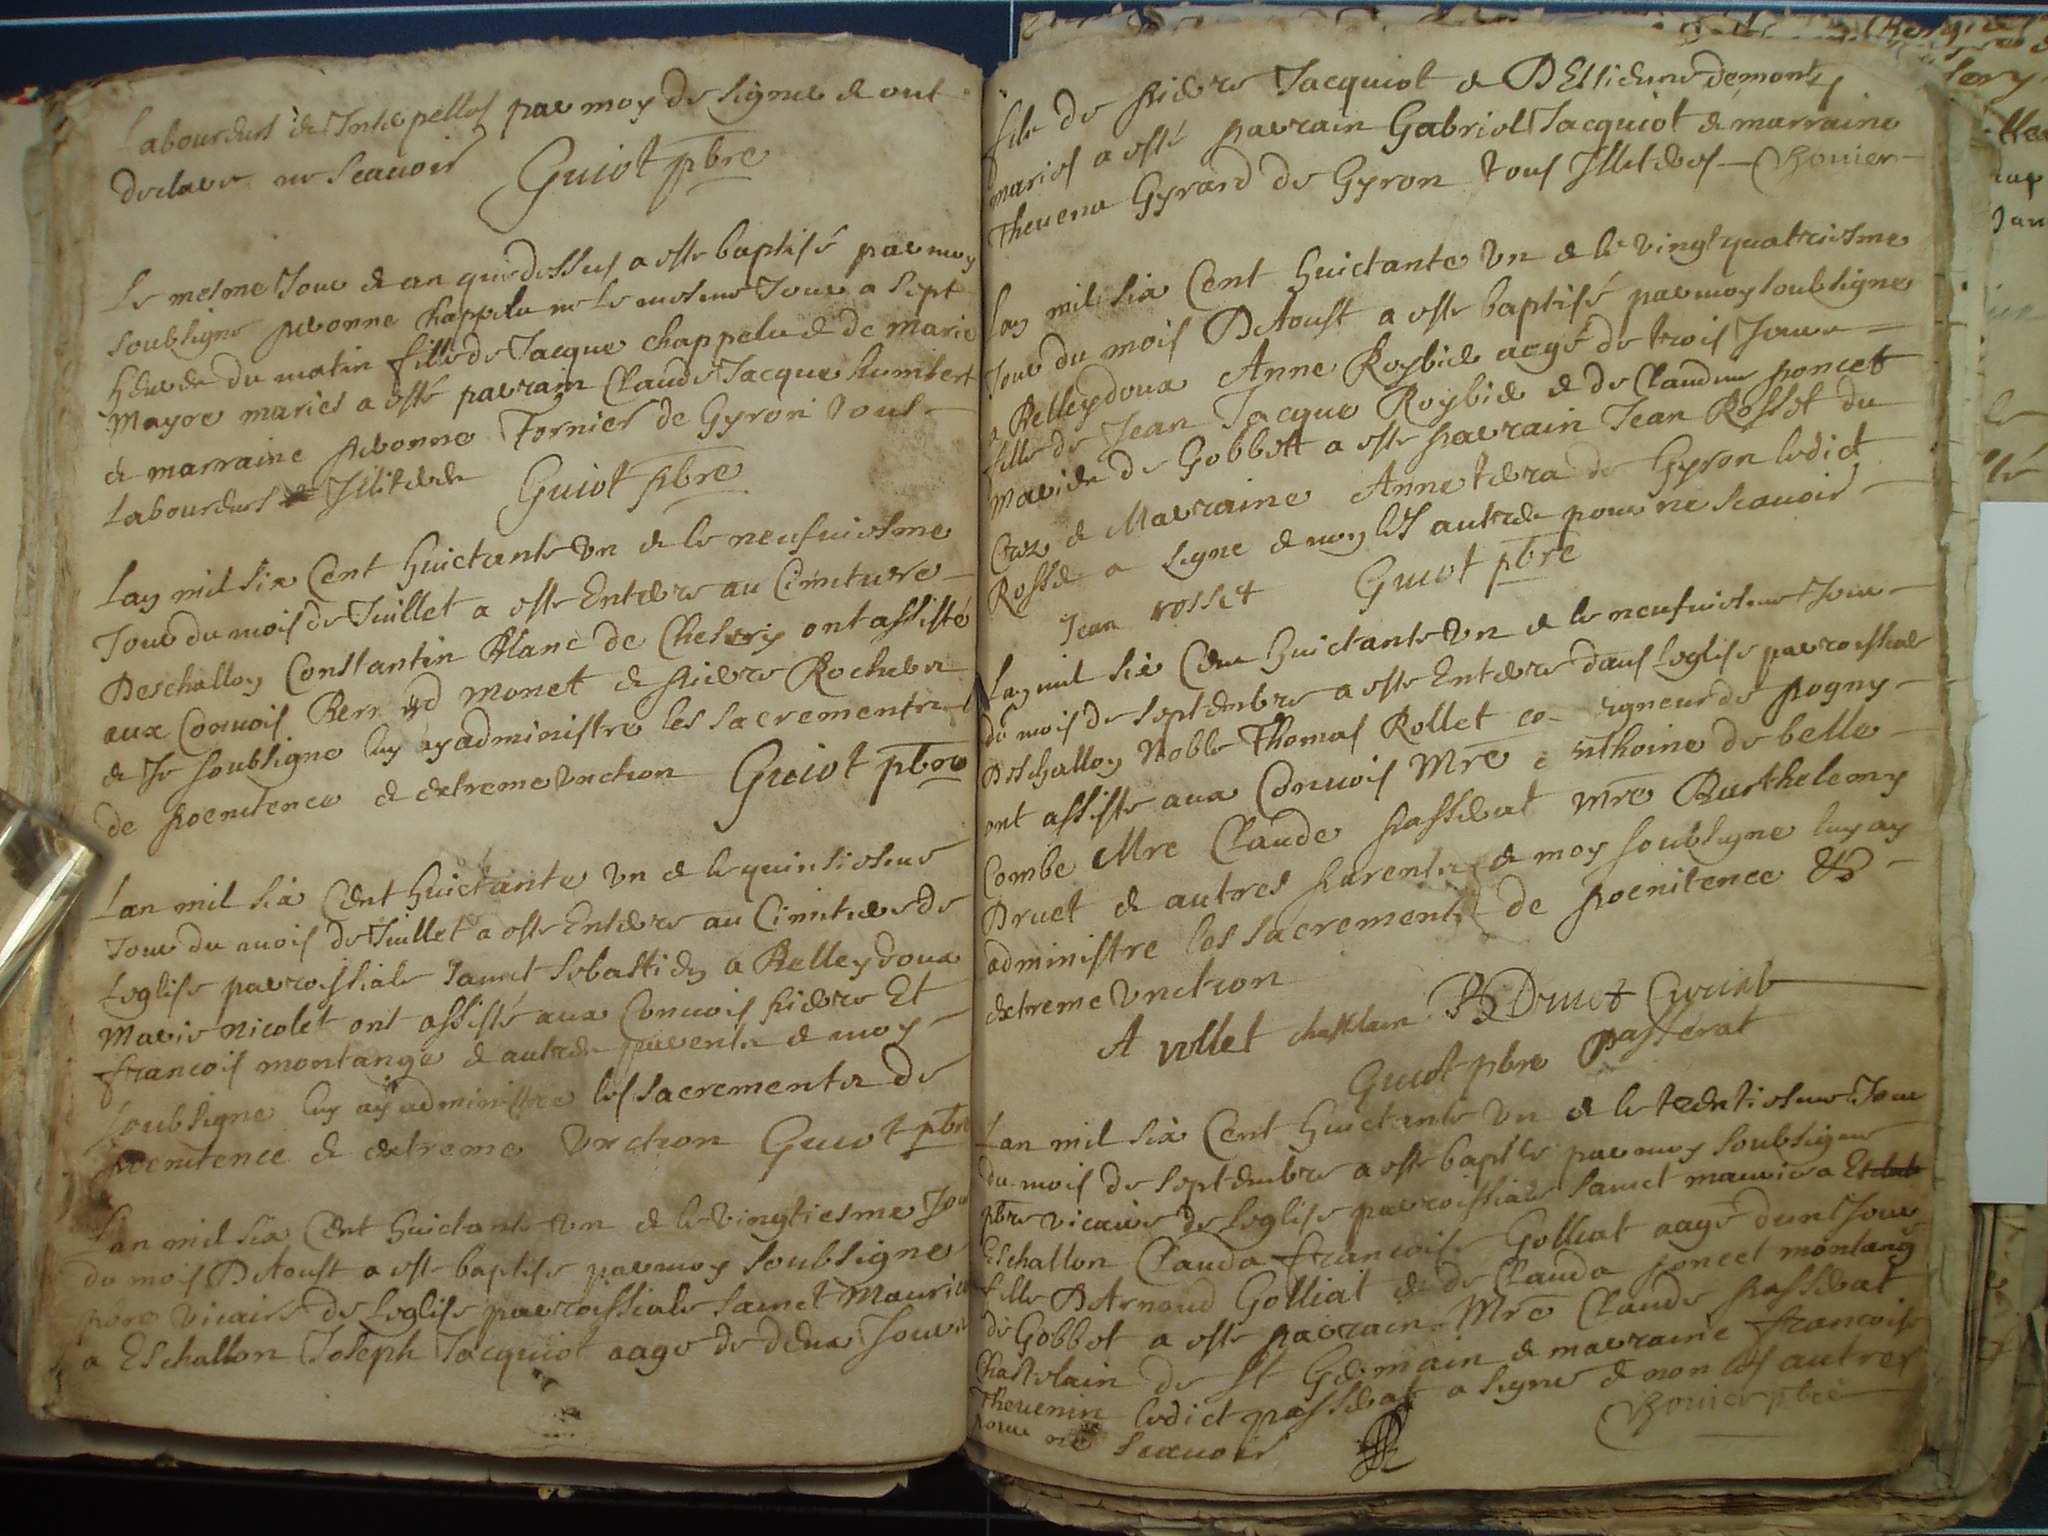 Laboureurs & Interpelles par moy de signer & ont
declare ne scauoir Guiot pbre
Le mesme Jour & an que dessus a este baptisé par moy
soubsigne Pebonne Chappelu ne le mesme Jour a sept
heures du matin fille de Jacque chappelu & de Marie
Mayre maries a esté parrain Claude Jacque humbert
& marraine Pebonne Fornier de Gyron tous
Laboureurs Illiteres Guiot pbre
Lan mil six Cent huictante Un & le neufuiesme
Jour du mois de Juillet a este Enterre au Cimetiere
Deschallon Constantin Blanc de Chelery ont assisté
aux Conuois Bernard Monet & Pierre Rochaix
& Je soubsigne luy ay administre les sacrements
de poenitence & extreme Unction Guiot pbre
Lan mil six Cent huictante Un & le quinsiesme
Jour du mois de Juillet a este Enterre au Cimetiere de
Leglise parrossiale Sainct Sebastien a Belleydoux
Marie Nicolet ont assisté aux Conuois Pierre Et
francois montange & autres parents & moy
soubsigne luy ay administre les sacrements de
poenitence & extreme Unction Guiot pbre
Lan mil six Cent huictante Un & le vingtiesme Jour
du mois DAoust a este baptise par moy soubsigne
pbre vicaire de Leglise parrossiale Sainct Maurice
a Eschallon Joseph Jacquiot aage de deux Jours
fils de Pierre Jacquiot & DEstienne demonty
maries a esté parrain Gabriel Jacquiot & marraine
Theuena Gyrard de Gyron tous Illiteres Bouier
Lan mil six Cent huictante Un & le vingtquatriesme
Jour du mois DAoust a este baptisé par moy soubsigne
a Belleydoux Anne Roybie aagé de trois Jours
fille de Jean Jacque Roybie & de Claudine poncet
maries de Gobbett a este parrain Jean Rosset du
Craz & Marraine Anne tera de Gyron ledict
Rosset a signe & non les autres pour ne scauoir
Jean rosset Guiot pbre
Lan mil six Cent huictante Un & le neufuiesme Jour
du mois de septembre a este Enterre dans Leglise parrossiale
Deschallon Noble Thomas Rollet co- signeur de Pogny
ont assiste aux Conuois Mre Anthoine de belle
Combe Mre Claude passerat Mre Barthelemy
Druet & autres parents & moy soubsigne luy ay
administre les sacrements de poenitence &
extreme Unction
A rollet chastelain B Druet Curial
Guiot pbre Passerat
Lan mil six Cent huictante Un & le trentiesme Jour
du mois de septembre a este baptisé par moy soubsigne
pbre vicaire de Leglise parroissiale Sainct maurice a
Eschallon Clauda francoise Golliat aage dun Jour
fille DArnaud Golliat & de Clauda poncet montang
de Gobbet a este parrain Mre Claude passerat
Chastelain de St Germain & marraine francoise
Theuenin ledict passerat a signe & non les autres
pour ne scauoir Bouier pbre